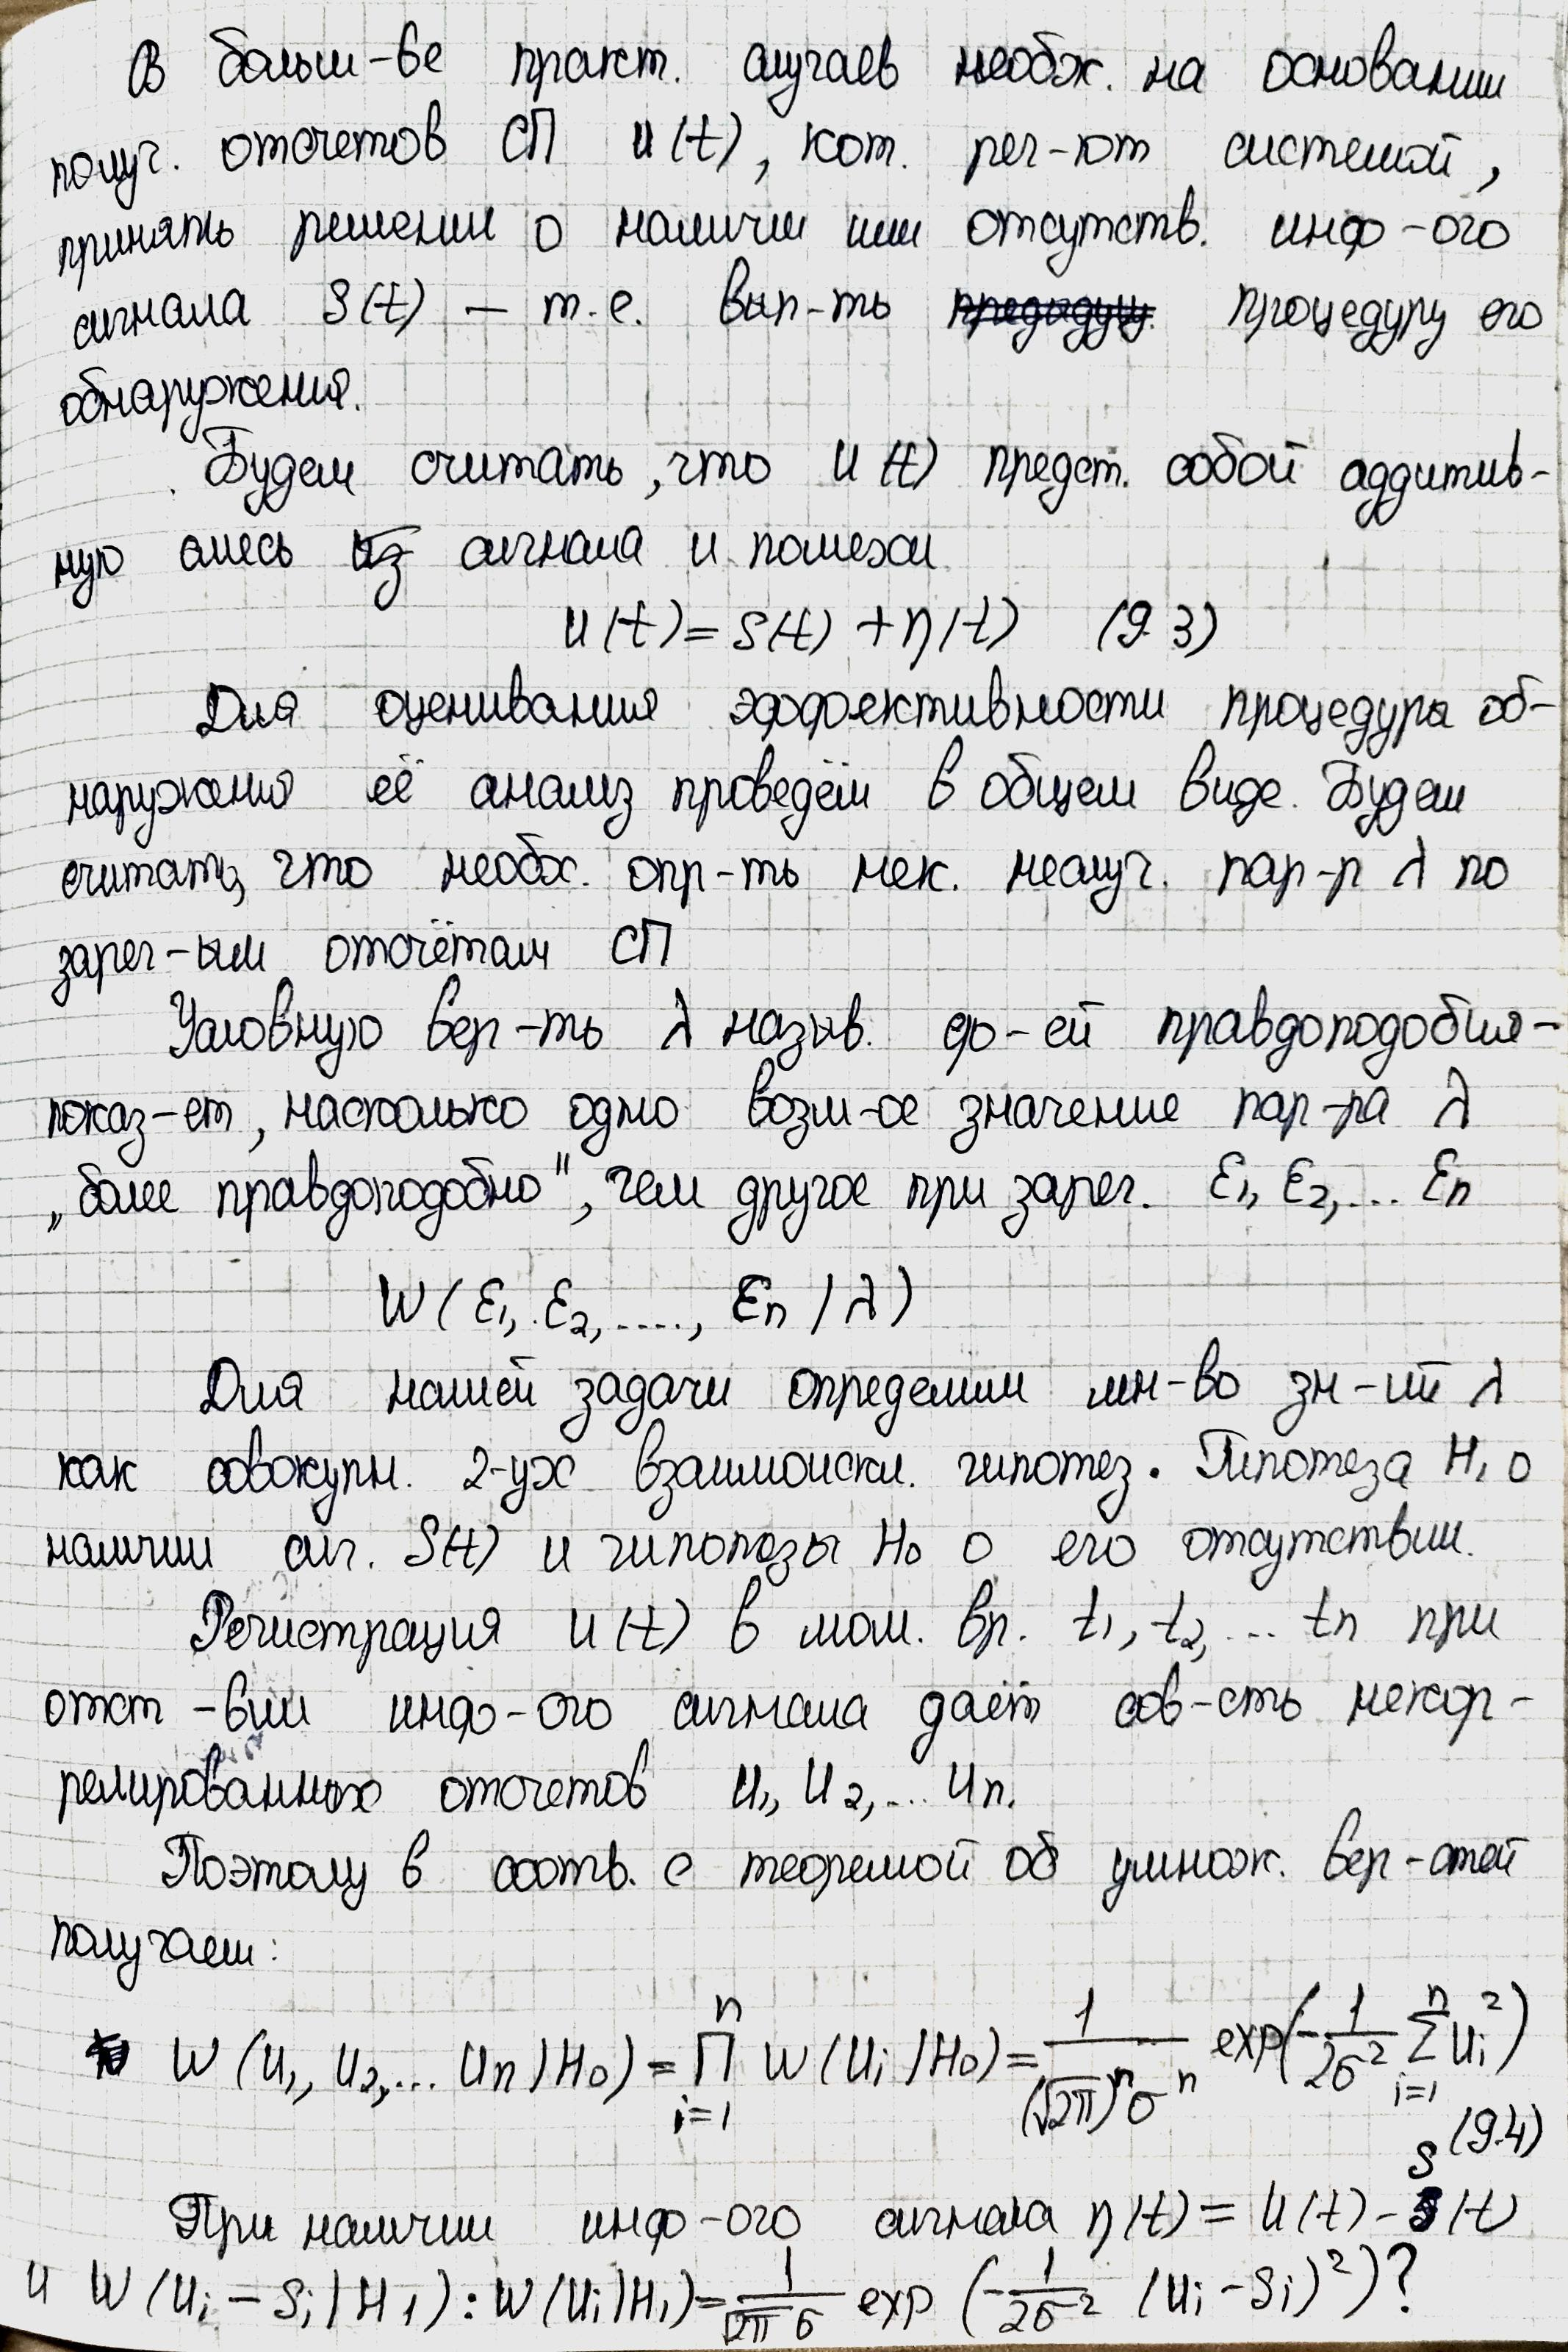 В больш-ве практ. случаев необх. на основании
получ. отсчетов СП u(t), кот. рег-ют системой,
принять решении о наличии или отсутств. инф-ого
сигнала S(t) — т.е. вып-ть процедуру его
обнаружения.
Будем считать, что u(t) предст. собой аддитив-
ную смесь из сигнала и помехи
u(t) = S(t) + η(t) (9.3)
Для оценивания эффективности процедура об-
наружения её анализ проведём в общем виде. Будем
считать, что необх. опр-ть нек. неслуч. пар-р λ по
зарег-ым отсчётам СП
Условную вер-ть λ назыв. ф-ей правдоподобия -
показ-ет, насколько одно возм-ое значение пар-ра λ
„более правдоподобно", чем другое при зарег. ε1, ε2, ... εn
W(ε1, ε2, ...., εn / λ)
Для нашей задачи определим мн-во зн-ий λ
как совокупн. 2-ух взаимоискл. гипотез. Гипотеза H1 о
наличии сиг. S(t) и гипотезы H0 о его отсутствии.
Регистрация u(t) в мом. вр. t1, t2, ... tn при
отст-вии инф-ого сигнала даёт сов-сть некор-
релированных отсчетов u1, u2, ... un.
Поэтому в соотв. с теоремой об умнож. вер-стей
получаем:
W(u1, u2, ... un / H0) = ∏_{i=1}^{n} W(ui / H0) = 1/((√2π)^n σ^n) exp(-1/(2σ²) Σ_{i=1}^{n} ui²)
(9.4)
При наличии инф-ого сигнала η(t) = u(t) - S(t)
и W(ui - Si / H1) : W(ui / H1) = 1/(√2π σ) exp(-1/(2σ²) (ui - Si)²)?